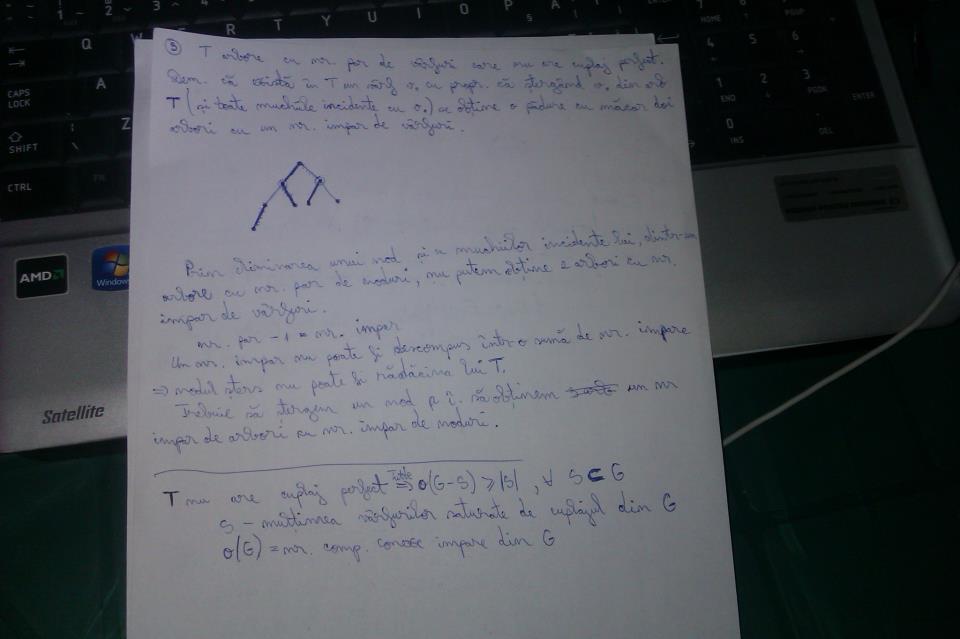 ⑤ T arbore cu nr. par de vârfuri care nu are cuplaj perfect.
Dem. că există în T un vârf v₀ cu propr. că ștergând v₀ din arb
T (și toate muchiile incidente cu v₀) se obține o pădure cu măcar doi
arbori cu un nr. impar de vârfuri.
Prin eliminarea unui nod și a muchiilor incidente lui, dintr-un
arbore cu nr. par de noduri, nu putem obține 2 arbori cu nr.
impar de vârfuri.
nr. par - 1 = nr. impar
Un nr. impar nu poate fi descompus într-o sumă de nr. impare
⇒ nodul șters nu poate fi rădăcina lui T.
Trebuie să ștergem un nod p. î. să obținem un nr
impar de arbori cu nr. impar de noduri.
T nu are cuplaj perfect ⇒ O(G-S) > |S|, ∀ S ⊂ G
Tutte
S - mulțimea vârfurilor saturate de cuplajul din G
O(G) = nr. comp. conexe impare din G
AMD
Windows
Satellite
CAPS
LOCK
SHIFT
CTRL
FN
Q
W
E
R
T
Y
U
I
O
P
A
Z
HOME
PGUP
END
PGDN
ENTER
INS
DEL